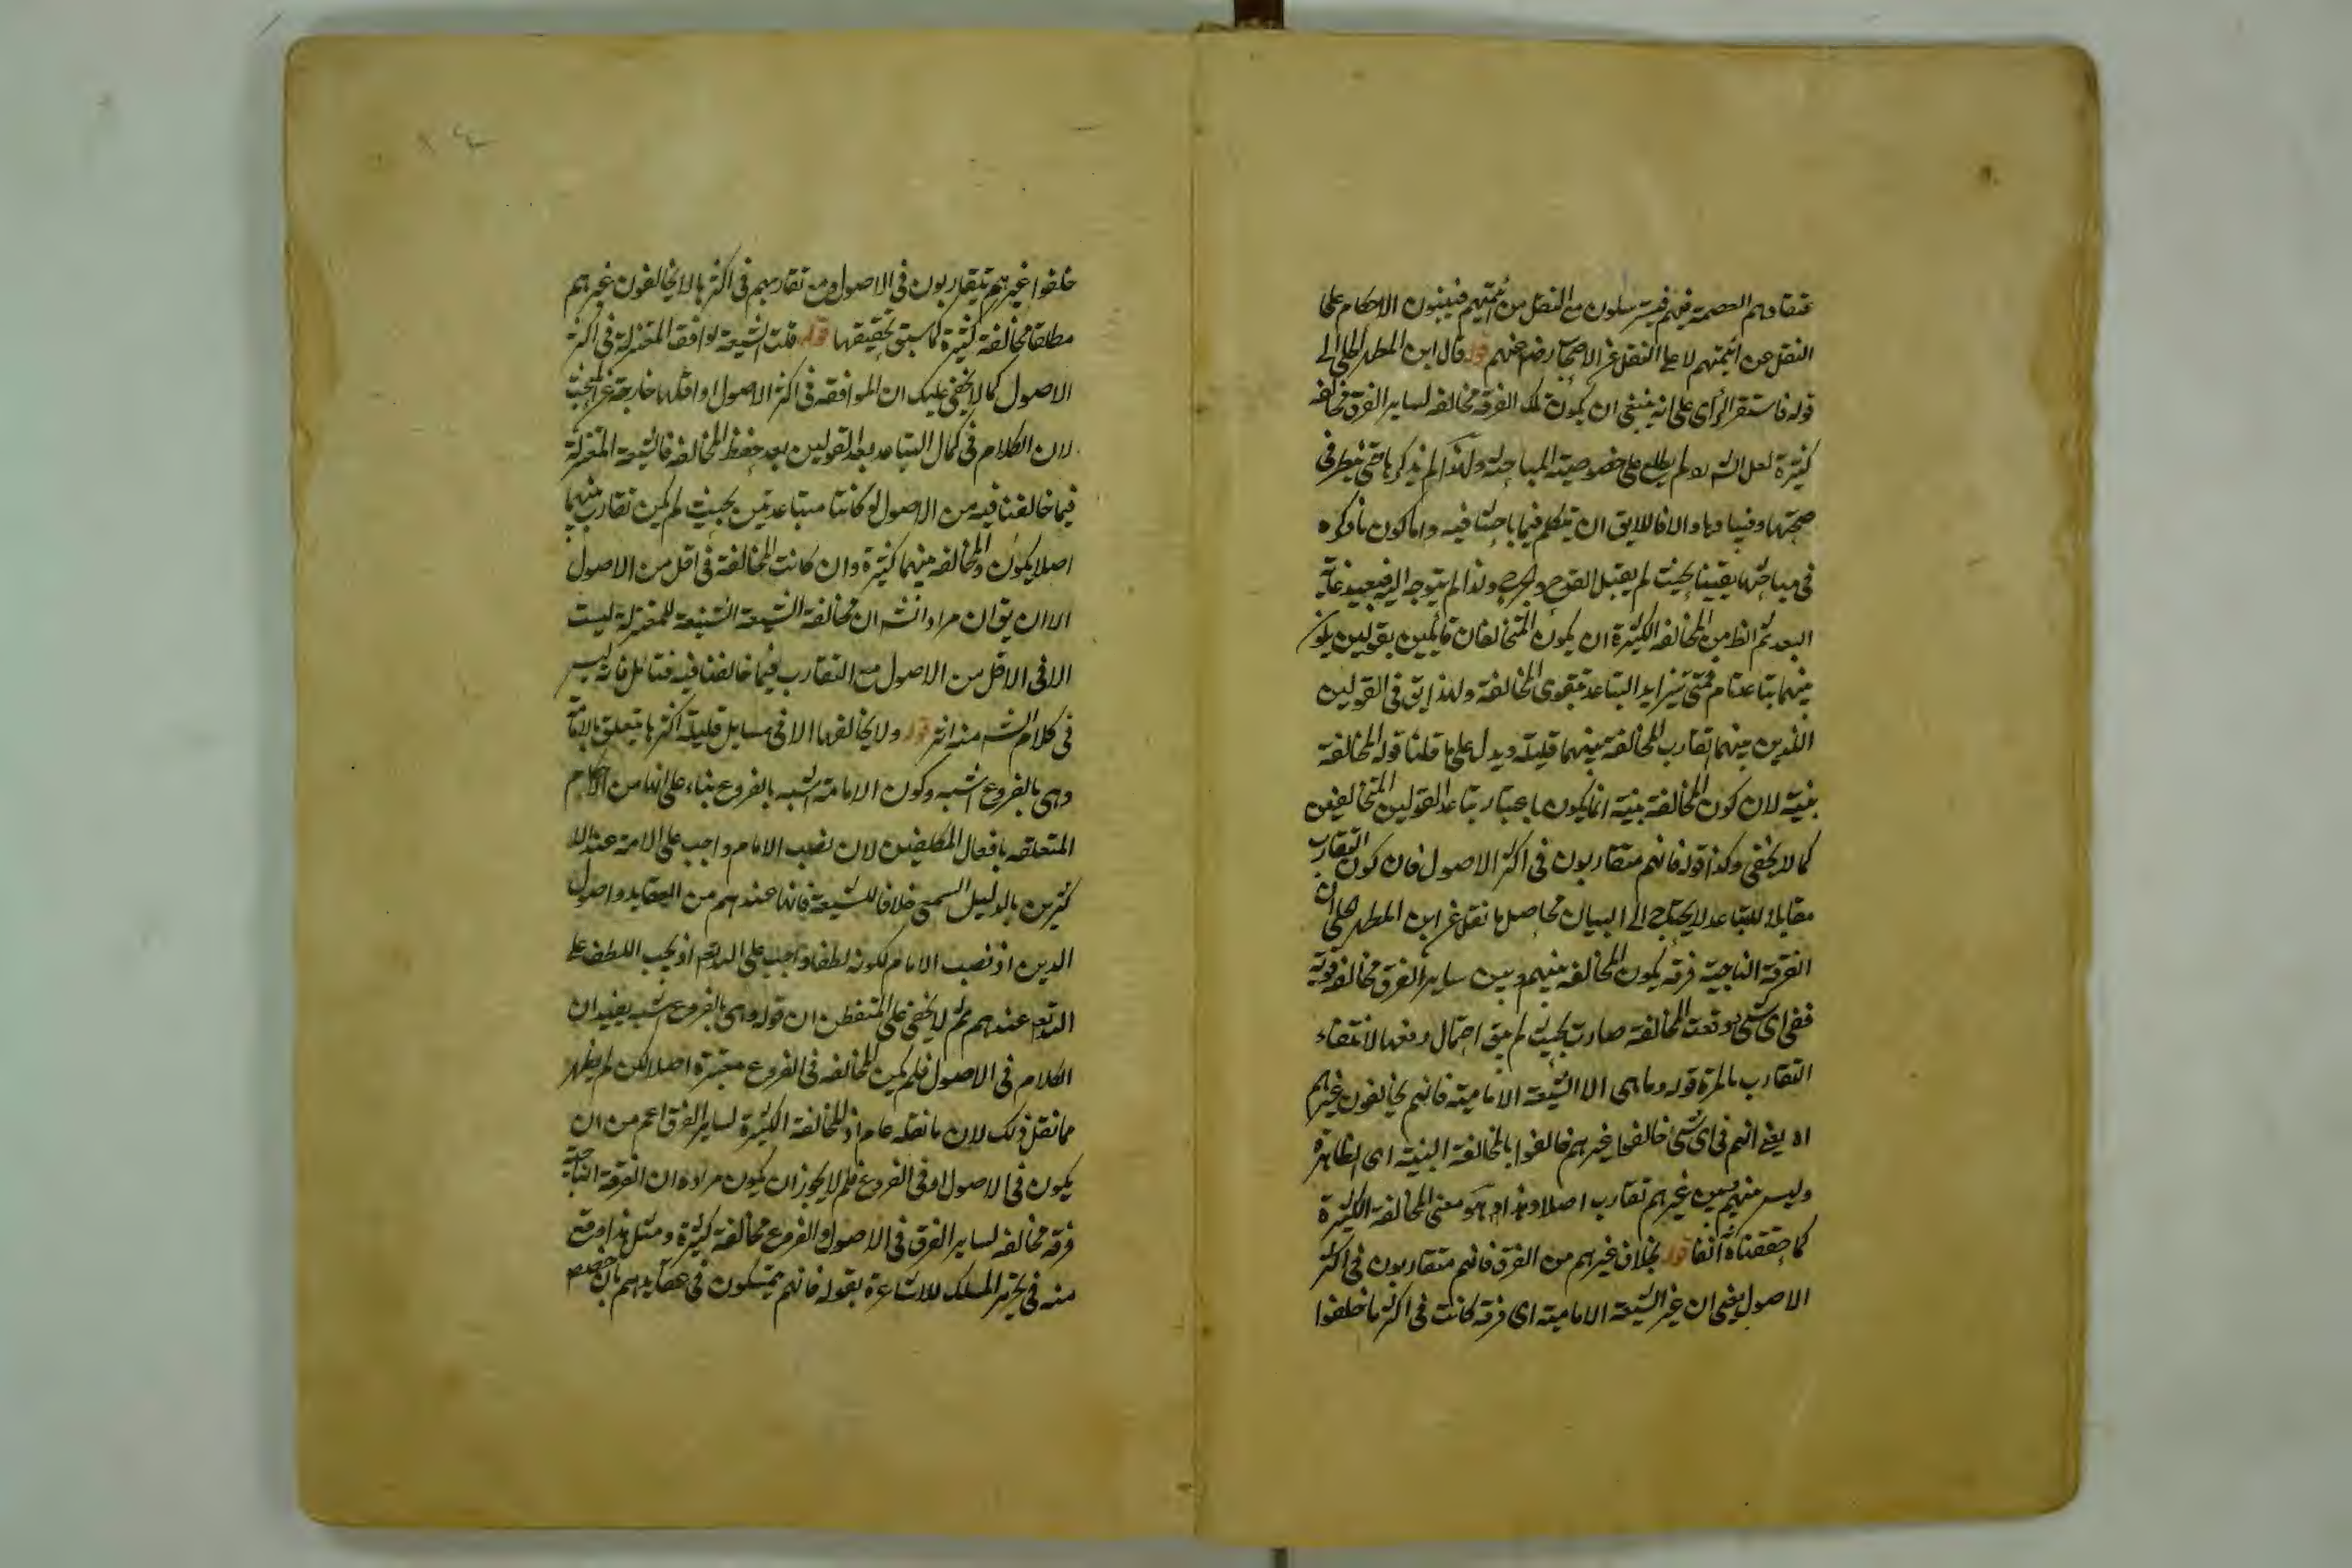 عتقادهم العصمة فيهم فيسترسلون مع النقل من ائمتهم فيبنون الاحكام على
النقل عن ائمتهم لا على النقل عن الاصحاب رضى عنهم قوله قال ابن المطهر الحلى الى
قوله فاستقر الرأى على انه ينبغى ان يكون تلك الفرقة مخالفة لساير الفرق مخالفة
كثيرة لعل الش لم يطلع على خصوصية المباحثة ولهذا لم يذكرها حتى ينظر فى
صحتها وفسادها والا فاللايق ان يتكلم فيما باحثا فيه واما كون ما ذكره
فى مباحثها يقينيا بحيث لم يقبل القدح والجرح ولذا لم يتوجه اليه فبعيد غاية
البعد ثم الظ من المخالفة الكثيرة ان يكون المتخالفان قائلين بقولين يكون
بينهما تباعد تام فمتى يتزايد التباعد يتقوى المخالفة ولهذا يق فى القولين
اللذين بينهما تقارب المخالفة بينهما قليلة ويدل على ما قلنا قوله المخالفة
بينة لان كون المخالفة بينة انما يكون باعتبار تباعد القولين المتخالفين
كما لا يخفى وكذا قوله فانهم متقاربون فى اكثر الاصول فان كون التقارب
مقابلا للتباعد لا يحتاج الى البيان فحاصل ما نقل عن ابن المطهر الحلى ان
الفرقة الناجية فرقة يكون المخالفة بينهم وبين ساير الفرق مخالفة قوية
ففى اى شئ وقعت المخالفة صارت بحيث لم يبق احتمال رفعها لانتفاء
التقارب بالمرة قوله وما هى الا الشيعة الامامية فانهم يخالفون غيرهم
اه يعنى انهم فى اى شئ خالفوا غيرهم خالفوا بالمخالفة البينة اى الظاهرة
وليس بينهم وبين غيرهم تقارب اصلا وهذا هو معنى المخالفة الكثيرة
كما حققناه آنفا قوله بخلاف غيرهم من الفرق فانهم متقاربون فى اكثر
الاصول يعنى ان غير الشيعة الامامية اى فرقة كانت فى اكثر ما خلفوا
خلفوا غيرهم يتقاربون فى الاصول ومع تقاربهم فى اكثرها لا يخالفون غيرهم
مطلقا مخالفة كثيرة كما سبق تحقيقها قوله قلت الشيعة توافق المعتزلة فى اكثر
الاصول كما لا يخفى عليك ان الموافقة فى اكثر الاصول او اقلها خارجة عن المبحث
لان الكلام فى كمال التباعد بعد القولين بعد حفظ المخالفة فالشيعة المعتزلة
فيما خالفنا فيه من الاصول لو كانتا متباعدتين بحيث لم يكن تقارب بينهما
اصلا يكون المخالفة بينهما كثيرة وان كانت المخالفة فى اقل من الاصول
الا ان يق ان مراد الش ان مخالفة الشيعة الشنيعة للمعتزلة ليست
الا فى الاقل من الاصول مع التقارب فيما خالفنا فيه فتأمل فانه ليس
فى كلام الش منه اثر قوله ولا يخالفها الا فى مسايل قليلة اكثرها يتعلق بالامامة
وهى بالفروع اشبه وكون الامامة اشبه بالفروع بناء على انها من الاحكام
المتعلقة بافعال المكلفين لان نصب الامام واجب على الامة عند الا
كثرين بالدليل السمعى خلافا للشيعة فانها عندهم من العقايد واصول
الدين اذ نصب الامام لكونه لطفا واجب على الله تعم اذ يجب اللطف على
الله تعم عندهم ثم لا يخفى على المتفطن ان قوله وهى بالفروع اشبه يفيد ان
الكلام فى الاصول فلم يكن المخالفة فى الفروع معتبرة اصلا لكن لم يظهر
مما نقل ذلك لان ما نقله عام اذ المخالفة الكثيرة لساير الفرق اعم من ان
يكون فى الاصول او فى الفروع فلم لا يجوز ان يكون مراده ان الفرقة الناجية
فرقة مخالفة لساير الفرق فى الاصول والفروع مخالفة كثيرة ومثل هذا وقع
منه فى تحرير المسلك للاشاعرة بقوله فانهم يتمسكون فى عقايدهم بان